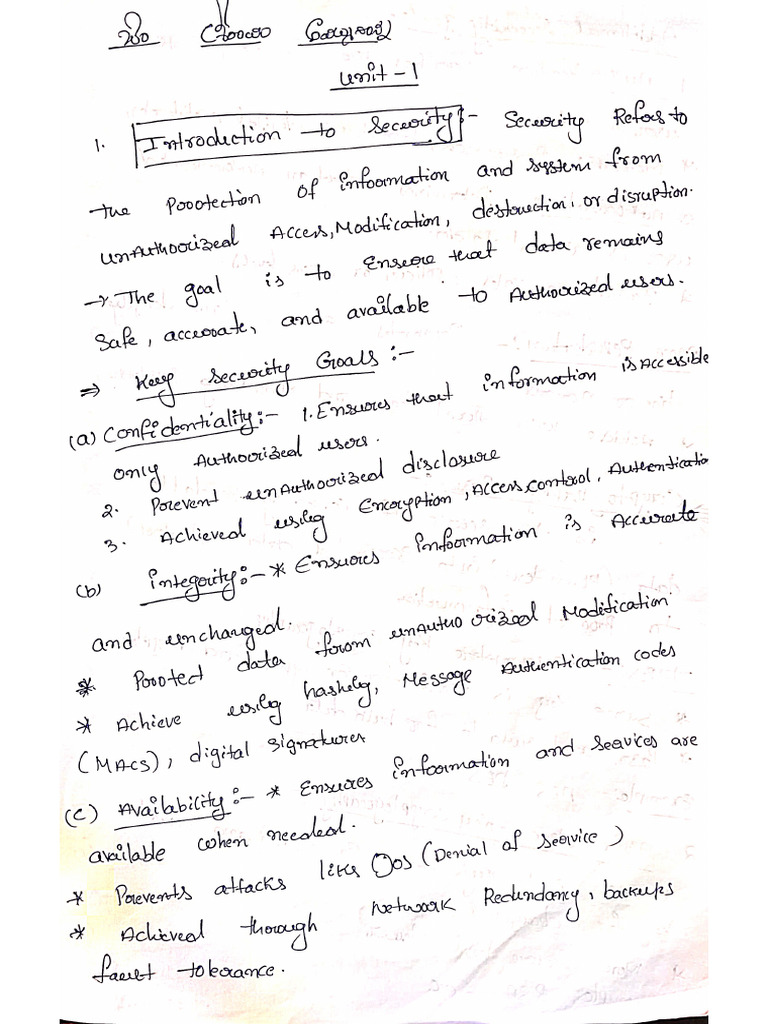 Unit - 1
1. Introduction to Security :- Security Refers to
the Protection of information and system from
unAuthorized Access, Modification, destruction, or disruption.
→ The goal is to Ensure that data remains
Safe, accurate, and available to Authorized users.
⇒ Key Security Goals :-
(a) Confidentiality :- 1. Ensures that information is Accessible
only Authorized users.
2. Prevent unAuthorized disclosure
3. Achieved using Encryption, Access control, Authentication
(b) integrity :- * Ensures information is Accurate
and unchanged.
* Protect data from unAuthorized Modification
* Achieve using hashing, Message Authentication codes
(MACs), digital signatures
(C) Availability :- * Ensures information and services are
available when needed.
* Prevents attacks like Dos (Denial of service)
* Achieved through Network Redundancy, backups
fault tolerance.